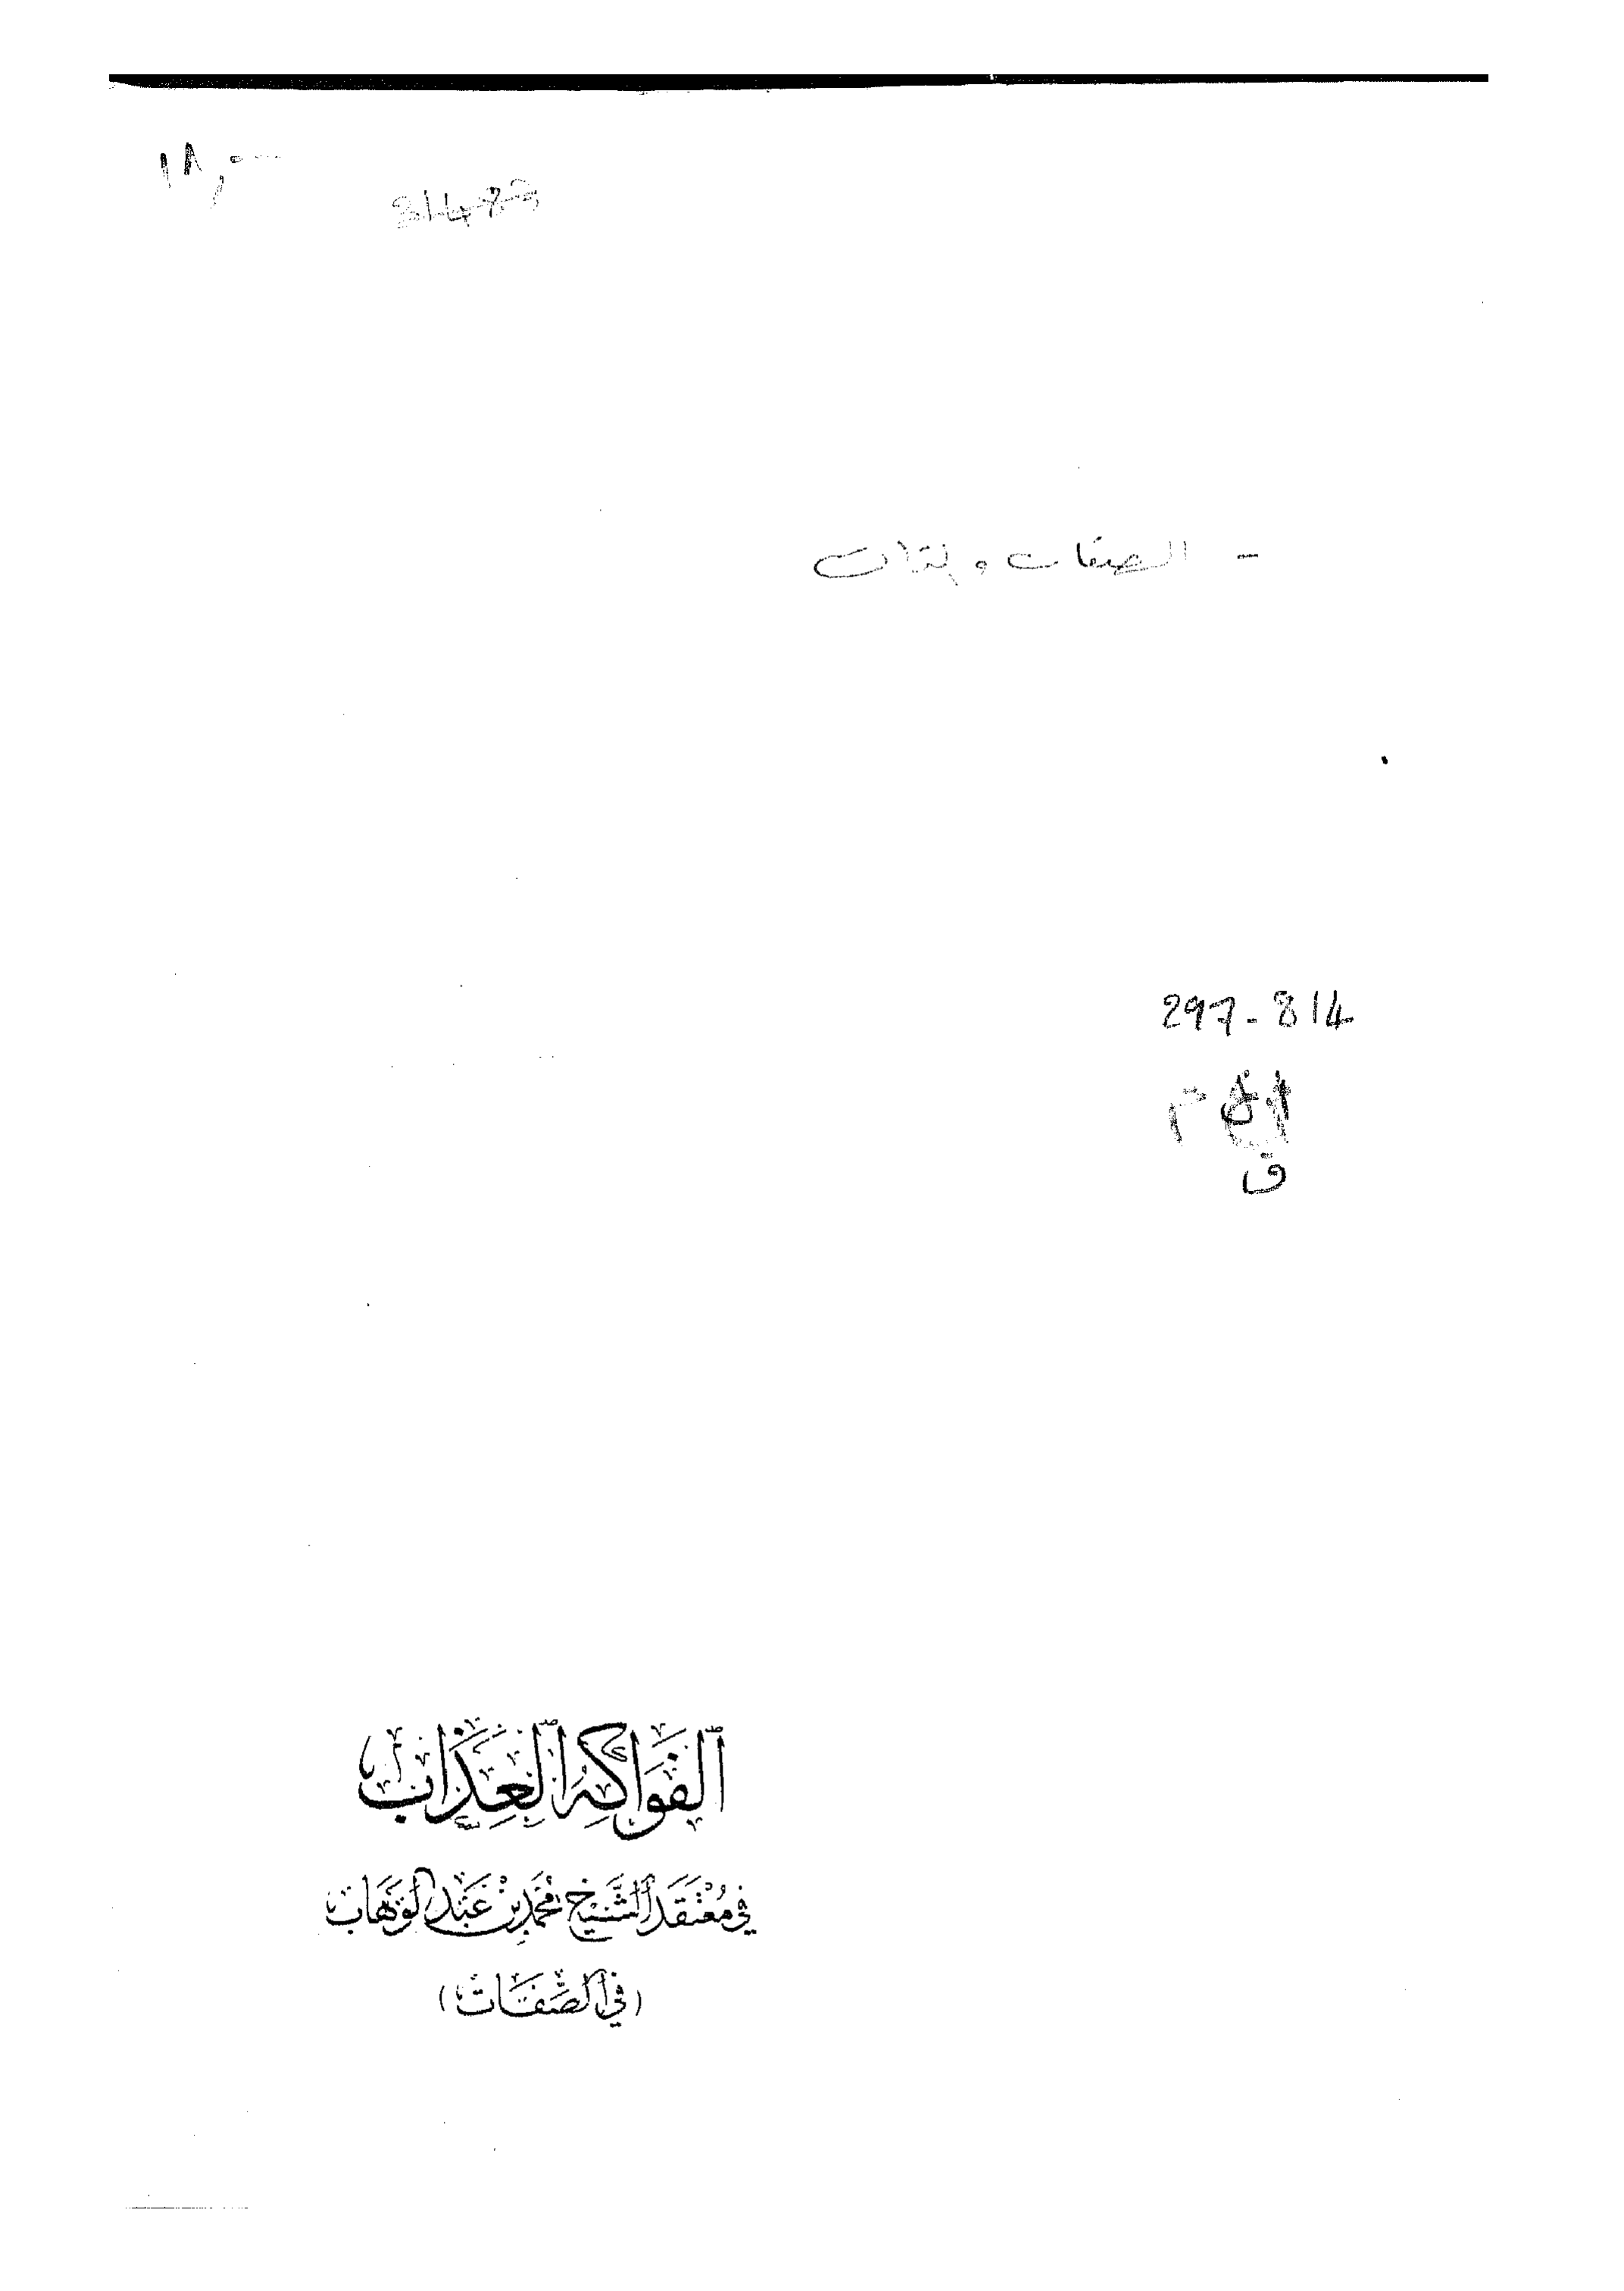 ١٨,٠٠
- الصفات و
297-814
ق
اَلفَوَاكِهُ العِذَابُ
فِي مُعْتَقَدِ الشَّيْخِ مُحَمَّدِ بْنِ عَبْدِ الْوَهَّابِ
(فِي الصِّفَاتِ)